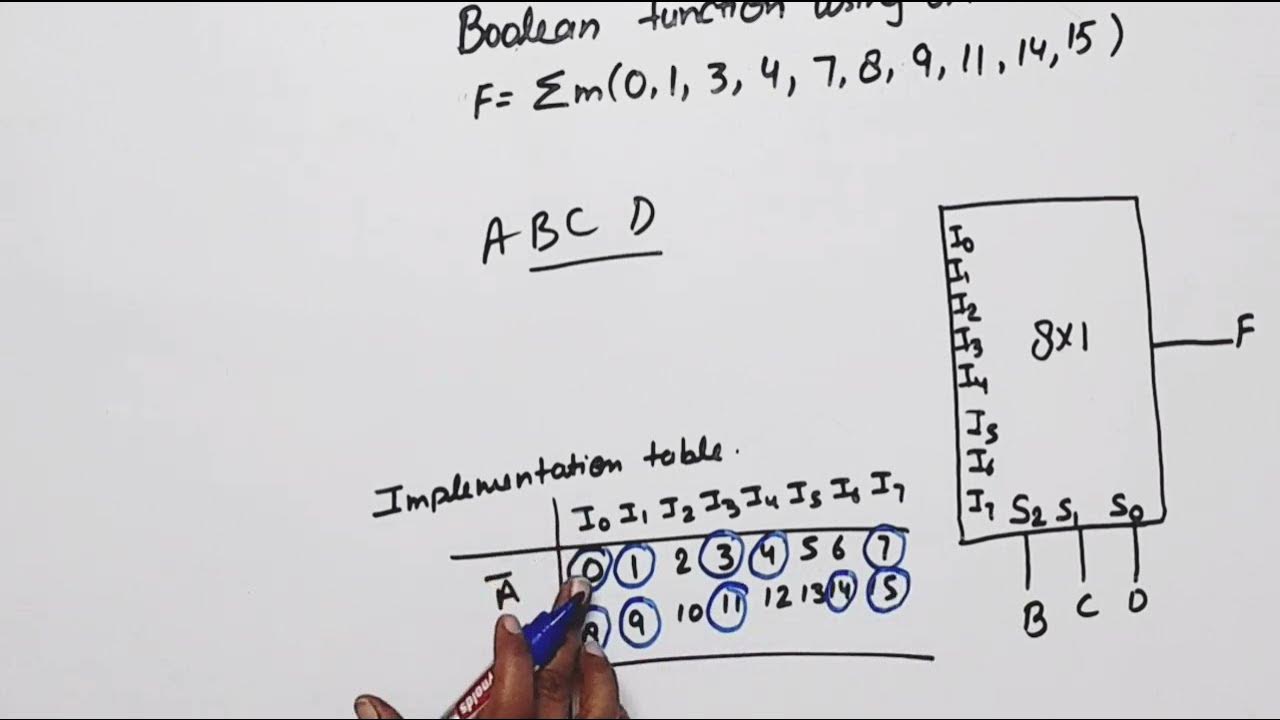 Boolean function using
F= Σm(0, 1, 3, 4, 7, 8, 9, 11, 14, 15)
A B C D
I0
I1
I2
I3
I4
I5
I6
I7
8x1
F
S2 S1 S0
B C D
Implementation table.
I0 I1 I2 I3 I4 I5 I6 I7
Ā 0 1 2 3 4 5 6 7
8 9 10 11 12 13 14 15